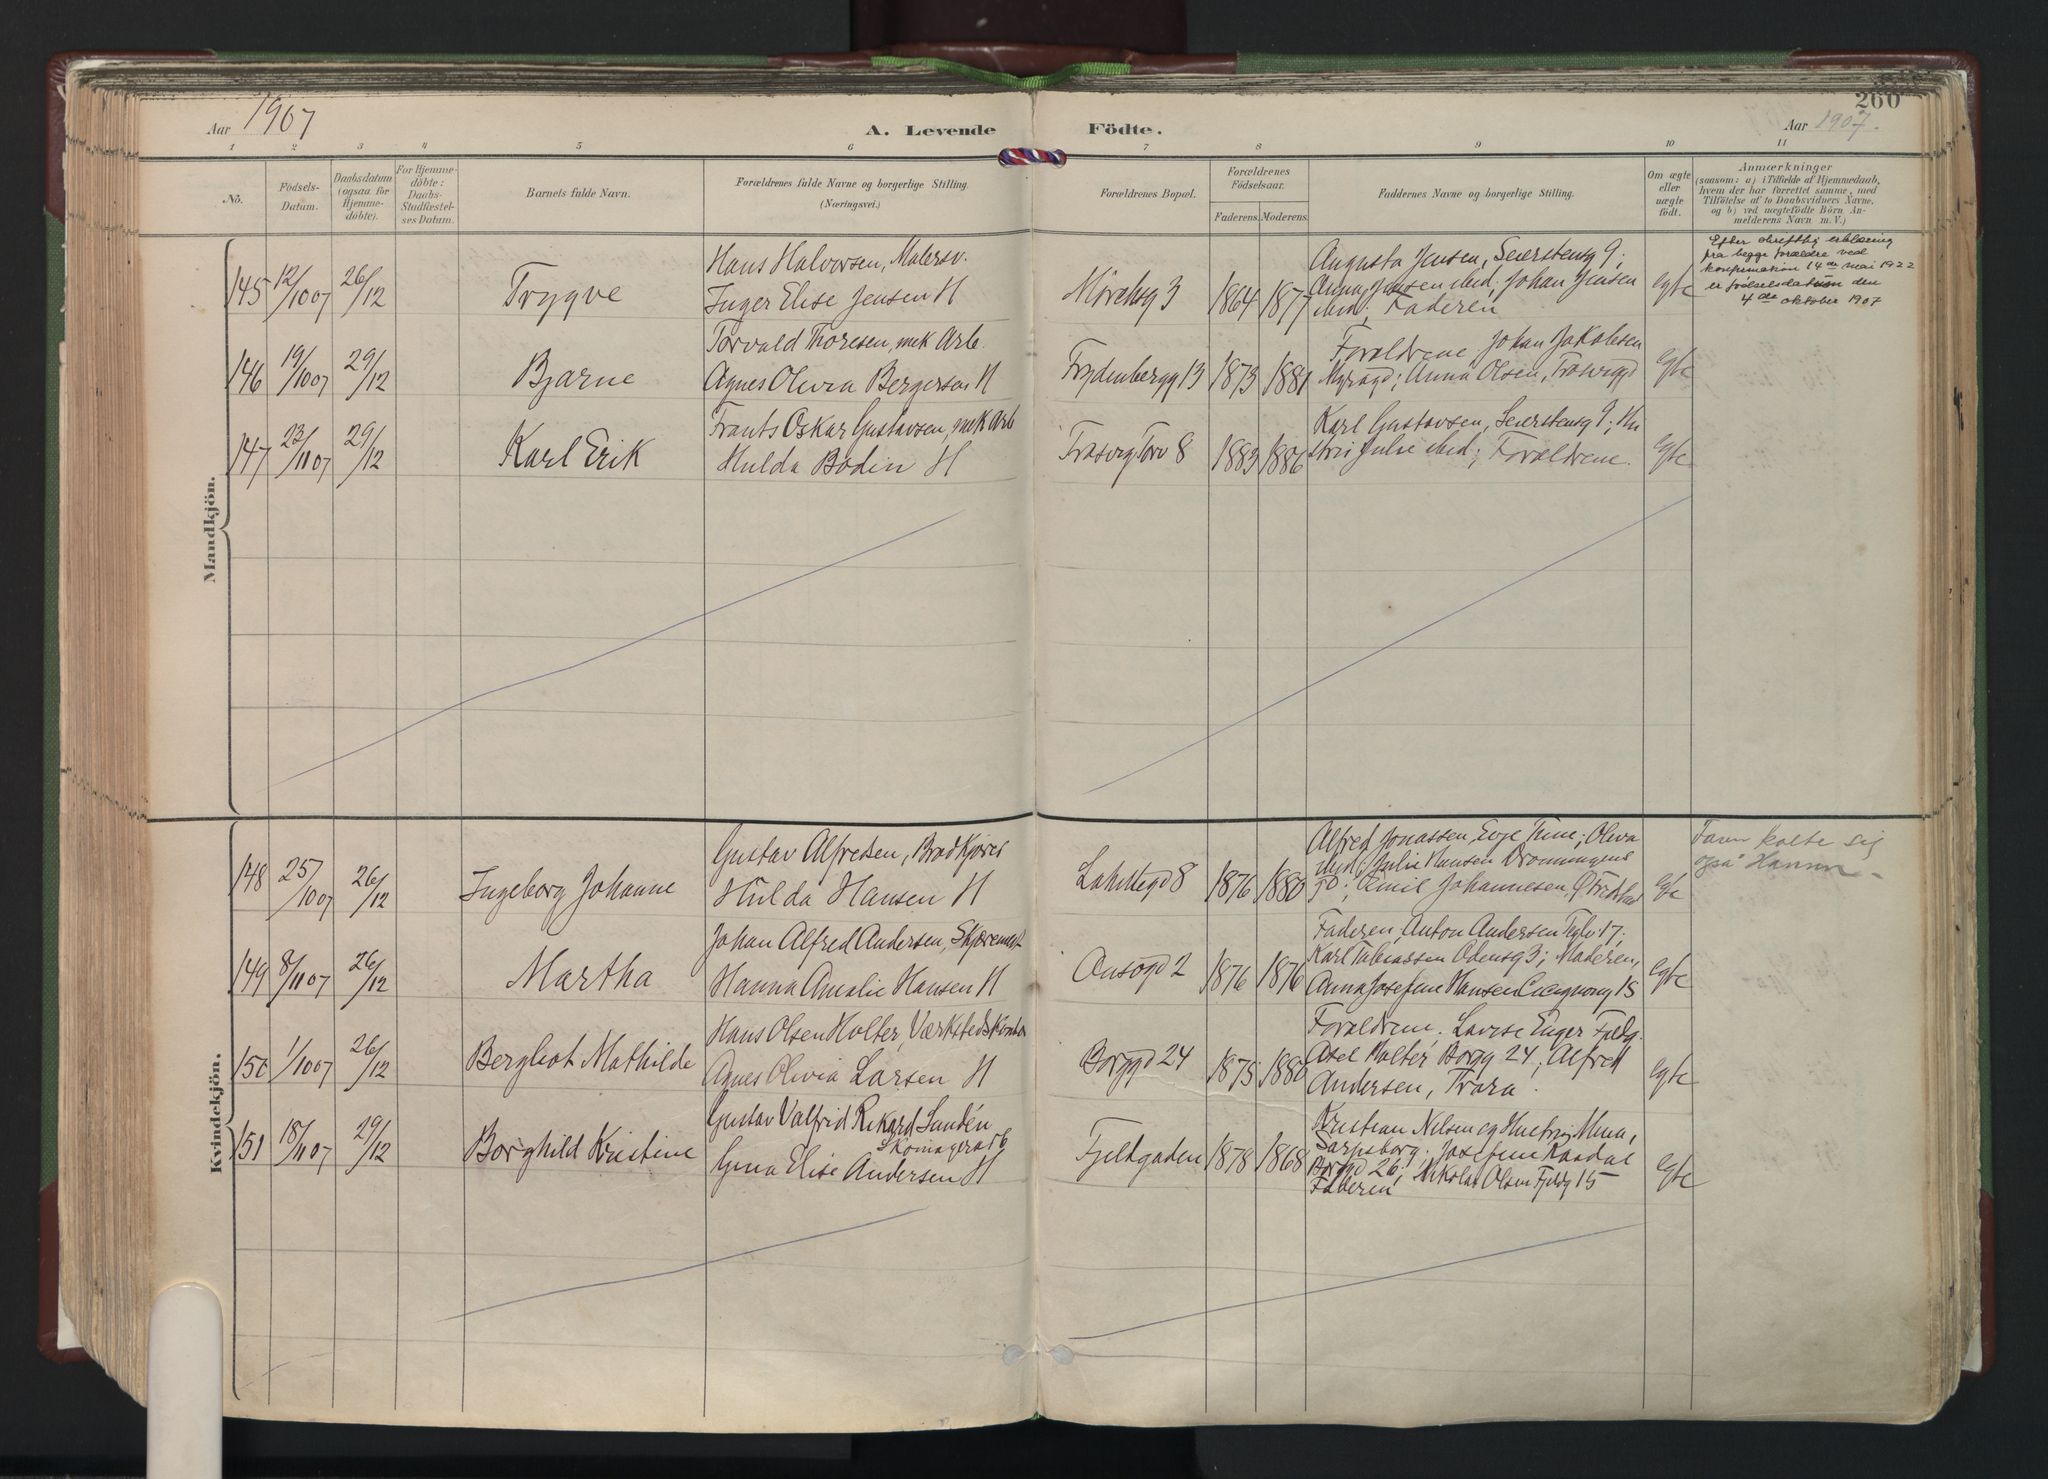 260
Aar 1907
A. Levende Födte.
Aar 1907.
1 2 3 4 5 6 7 8 9 10 11
No.
Födsels-
Datum.
Daabsdatum
(ogsaa for
Hjemme-
döbte).
For Hjemme-
döbte:
Daabs-
Stadfæstel-
ses Datum.
Barnets fulde Navn.
Forældrenes fulde Navne og borgerlige Stilling.
(Næringsvei.)
Forældrenes Bopæl.
Forældrenes
Födselsaar.
Faderens. Moderens.
Faddernes Navne og borgerlige Stilling.
Om ægte
eller
uægte
födt.
Anmærkninger
(saasom: a) i Tilfælde af Hjemmedaab,
hvem der har forrettet samme, med
Tilföielse af to Daabsvidners Navne,
og b) ved uægtefödte Börn An-
melderens Navn m. V.)
Mandkjön.
145 12/10 07 26/12 Trygve
Hans Halvorsen, Malersv.
Inger Elise Jensen H
1864 1877
Augusta Jensen, Seierstensg 9;
Anna Jensen ibid; Johan Jensen
ibid; Faderen
egte
Efter skriftlig erklæring
fra begge forældre ved
konfirmation 14de mai 1922
er fødselsdatum den
4de oktober 1907
146 19/10 07 29/12 Bjarne
Torvald Thoresen, mek Arb.
Agnes Olivia Bergersen H
Frydenbergg 13 1873 1881
Forældrene. Johan Jakobsen
Anna Olsen,
egte
147 23/11 07 29/12 Karl Erik
Frants Oskar Gustavsen, mek Arb
Hulda Bodin H
Trosvig Torv 8 1883 1886
Karl Gustavsen, Seierstensg 9; Hu
stru Julie ibid; Forældrene.
egte
Kvindekjön.
148 25/10 07 26/12 Ingeborg Johanne
Gustav Alfredsen, Brødkjører
Hulda Hansen H
1876 1880
Alfred Jonassen, Evje Tune; Oliva
ibid; Julie Hansen Dronningens
Emil Johannesen,
egte
kalte sig
også
149 8/11 07 26/12 Martha
Johan Alfred Andersen,
Hanna Amalie Hansen H
2 1876 1876
Faderen, Anton Andersen 17;
Karl Tobiassen Odensg 3; Moderen,
Anna Josefine Hansen 15
egte
150 1/10 07 26/12 Bergliot Mathilde
Hans Olsen Holter,
Agnes Olivia Larsen H
Borggd 24 1875 1880
Forældrene. Lovise Enger Fjeldg.
Axel Holter Borgg 24; Alfred
Andersen, Trara.
egte
151 18/11 07 29/12 Borghild Kristine
Gustav Valfrid Rikard Sandén
Skomagerarb
Gina Elise Andersen H
Fjeldgaden 1878 1868
Kristian Nilsen og Hustru Mina,
Sarpsborg; Josefine
26; Nikolai Olsen Fjeldg 15
Faderen
egte